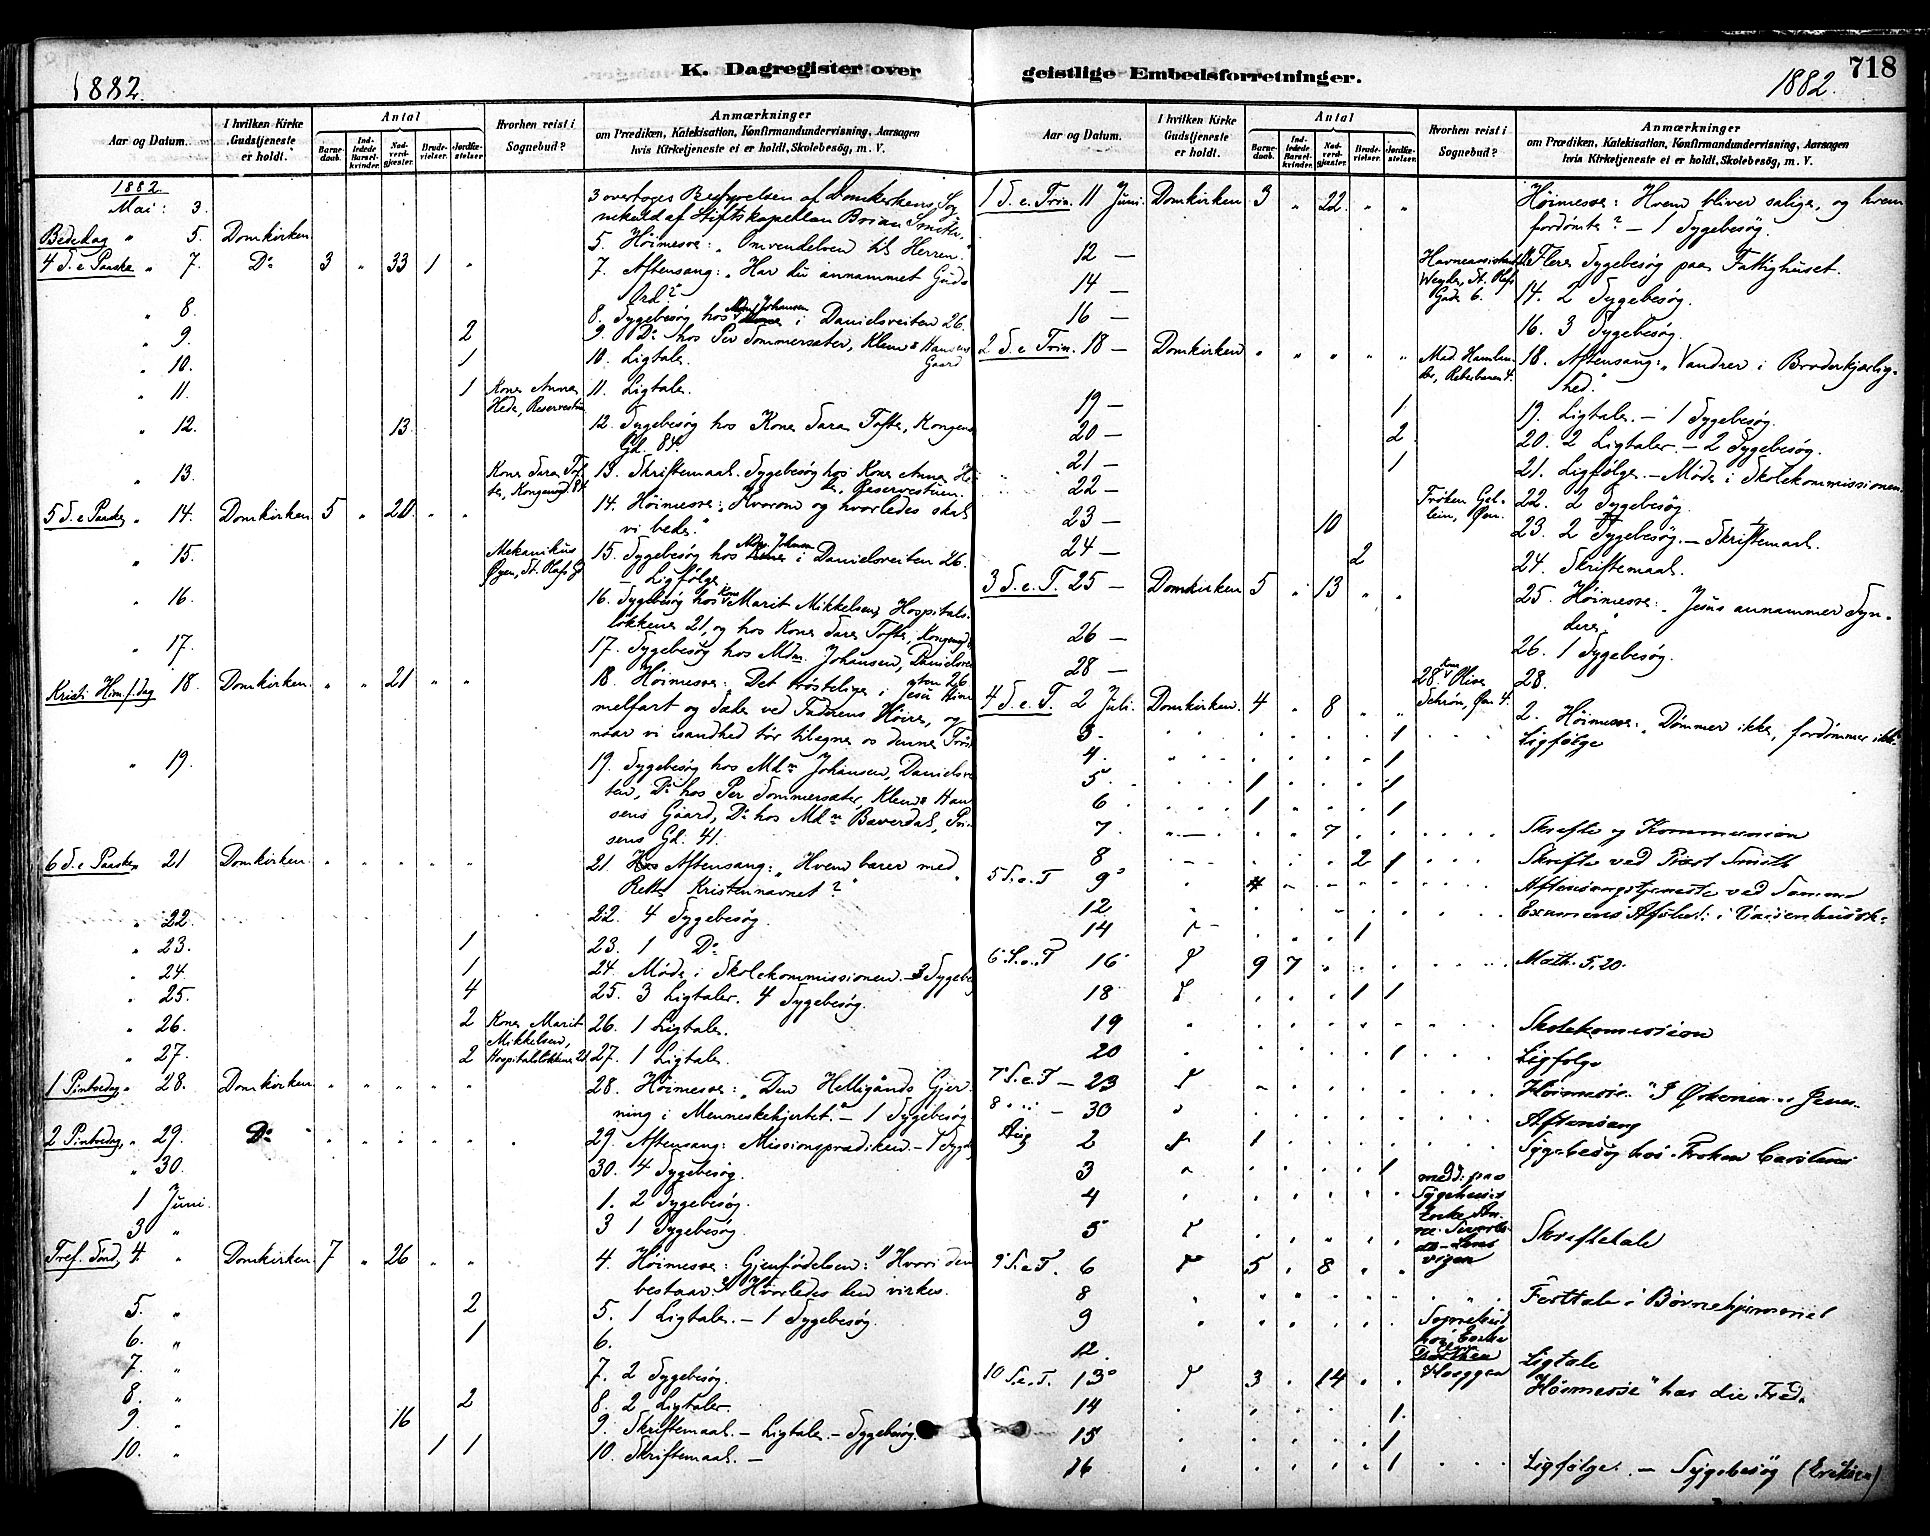 718
K. Dagregister over geistlige Embedsforretninger.
1882.
1882.
Aar og Datum.
I hvilken Kirke Gudstjeneste er holdt.
Antal
Barnedaab.
Indledede Barselkvinder.
Nadverdgjæster.
Brudevielser.
Jordfæstelser
Hvorhen reist i Sognebud?
Anmærkninger
om Prædiken, Katekisation, Konfirmandundervisning, Aarsagen
hvis Kirketjeneste ei er holdt, Skolebesøg, m. V.
1882.
Mai: 3. 3 overtoges Bestyrelsen af Domkirkens Sognekald af Stiftskapellan Brian Smith.
Bededag " 5. Domkirken 5. Höimesse: "Omvendelsen til Herren."
4 S. e Paaske " 7. Do 3 " 33 1 " 7. Aftensang: "Har du annammet Guds Ord?"
" 8. 8. Sygebesøg hos Mdm Johansen i Danielsveiten 26.
" 9. 2 9. Do hos Per Sommersæter, Klem Hansens Gaard
" 10. 1 10. Ligtale.
" 11. 1 Kone Anna Hede, Reservestuen 11. Ligtale.
" 12. 13. 12. Sygebesøg hos Kone Sara Tofte, Kongens Gd. 84.
" 13. Kone Sara Tofte, Kongensgd. 84 13. Skriftemaal. Sygebesøg hos Kone Anna Hede, Reservestuen.
5 S. e Paaske " 14. Domkirken 5 " 20 " " 14. Höimesse: "Hvorom og hvorledes skal vi bede."
" 15. Mekanikus Øyen, St. Olafs Gd 15. Sygebesøg hos Mdm. Johansen i Danielsveiten 26. Ligfølge
" 16. 16. Sygebesøg hos Kone Marit Mikkelsen, Hospitalsløkkene 21, og hos Kone Sara Tofte, Kongensgd
" 17. 17. Sygebesøg hos Mdm. Johansen, Danielsveiten 26
Kristi Him.f.dag 18. Domkirken " " 21 " " 18. Höimesse: Det trøstelige i Jesu Himmelfart og Sæde ved Faderens Høire, og naar vi i sandhed tør tilegne os denne Trøst
" 19. 19. Sygebesøg hos Mdm Johansen, Danielsveiten, Do hos Per Sommersæter, Klem Hansens Gaard, Do hos Mdm Bæverdal, Prinsens Gd. 41.
6 S. e Paaske " 21 Domkirken " " " " " 21. Aftensang: "Hvem bærer med Rette Kristennavnet?"
" 22. 22. 4 Sygebesøg.
" 23. 1 23. 1 Do
" 24. 1 24. Møde i Skolekommissionen. 3 Sygebesøg
" 25. 4 25. 3 Ligtaler. 4 Sygebesøg.
" 26. 2 Kone Marit Mikkelsen, Hospitalsløkkene 21 26. 1 Ligtale.
" 27. 2 27. 1 Ligtale.
1 Pintsedag " 28. Domkirken " " " " " 28. Höimesse: "Den Helligånds Gjerning i Menneskehjertet." – 1 Sygebesøg
2 Pintsedag " 29. Do " " " " " 29. Aftensang: Missionsprædiken – 1 Sygeb.
" 30. 30. 4 Sygebesøg.
1 Juni 1. 2 Sygebesøg.
3 " 3 1 Sygebesøg.
Tref. Sönd. 4. " Domkirken 7 " 26 " " 4. Höimesse: Gjenfødelsen: Hvori den bestaar. Hvorledes den virkes.
5. " 2 5. 1 Ligtale. – 1 Sygebesøg.
6. " 1 6.
7. " 7. 2 Sygebesøg.
8. " 2 8. 2 Ligtaler.
9. " 16 9. Skriftemaal. – Ligtale. – Sygebesøg.
10. " 1 1 10. Skriftemaal. –
Aar og Datum.
I hvilken Kirke Gudstjeneste er holdt.
Antal
Barnedaab.
Indledede Barselkvinder.
Nadverdgjæster.
Brudevielser.
Jordfæstelser.
Hvorhen reist i Sognebud?
Anmærkninger
om Prædiken, Katekisation, Konfirmandundervisning, Aarsagen
hvis Kirketjeneste ei er holdt, Skolebesøg, m. V.
1 S. e. Trin. 11 Juni. Domkirken 3 " 22 " " Höimesse: Hvem bliver salige, og hvem fordømte? – 1 Sygebesøg.
12 – Flere Sygebesøg paa Fattighuset.
14 – St. Olafs Gade 6. 14. 2 Sygebesøg.
16 – 16. 3 Sygebesøg.
2 S. e Trin. 18 – Domkirken " " " " " Mad. 18. Aftensang: "Vandrer i Broderkjærlighed."
19 – 1 19. Ligtale. – 1 Sygebesøg.
20 – 2 20. 2 Ligtaler. – 2 Sygebesøg.
21 – 1 21. Ligfølge. – Møde i Skolekommissionen
22 – Frøken 22. 2 Sygebesøg.
23 – 10 23. 2 Sygebesøg. – Skriftemaal.
24 – 2 24. Skriftemaal.
3 S. e. T. 25 – Domkirken 5 " 13 " " 25. Höimesse: "Jesus annammer Syndere."
26 – 26. 1 Sygebesøg.
28 – 28. Kone Oline Schrön, 28.
4 S. e. T. 2 Juli. Domkirken. 4 " 8 " " 2. Höimesse: "Dømmer ikke, fordømmer ikke"
3. 1 Ligfølge
4. 1
5. 1 1
6. 1 1
7. 7 Skrifte og Kommunion
8 2 1 Skrifte ved Præst Smith
5 S. e. T 9 4 Aftensangstjeneste ved Samme
12 Examens Afslut: i
14 1
6 S. e. T 16 9 7 Math. 5,20.
18 1 1
19 Skolekomission
20 1 Ligfølge
7 S. e. T – 23 Höimesse.
8 – 30 Aftensang
Aug 2 1 Sygebesøg hos Frøken
3 1
4
5 Skriftetale
9 S. e T. 6 5 " 8 " "
8 Festtale i
9
12. Ligtale
10 S. e. T. 13 3 14 Höimesse
14 1.
15 1
16 1 Ligfølge. – Sygebesøg